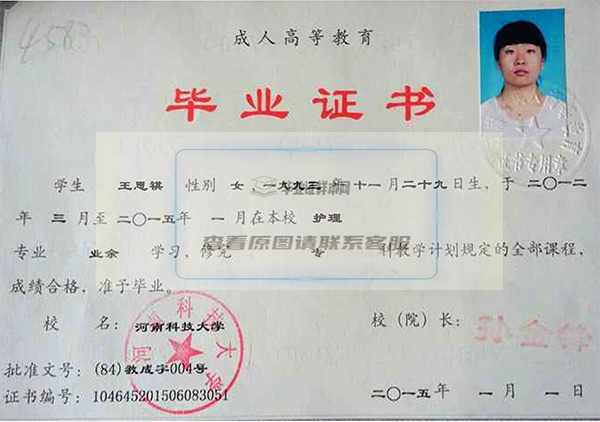 4583
成人高等教育
毕业证书
证书专用章
学生 王恩祺 性别 女，一九九三 年 十一 月 二十九 日生，于 二〇一二
年 三 月至 二〇一五年 一 月在本校 护理
毕业证样本网
查看原图请联系客服
专业 业余 学习，修完 专 科教学计划规定的全部课程，
成绩合格，准予毕业。
校 名：河南科技大学
校（院）长：
河南科技大学
批准文号：(84)教成字004号
证书编号：104645201506083051
二〇一五年 一 月 一 日